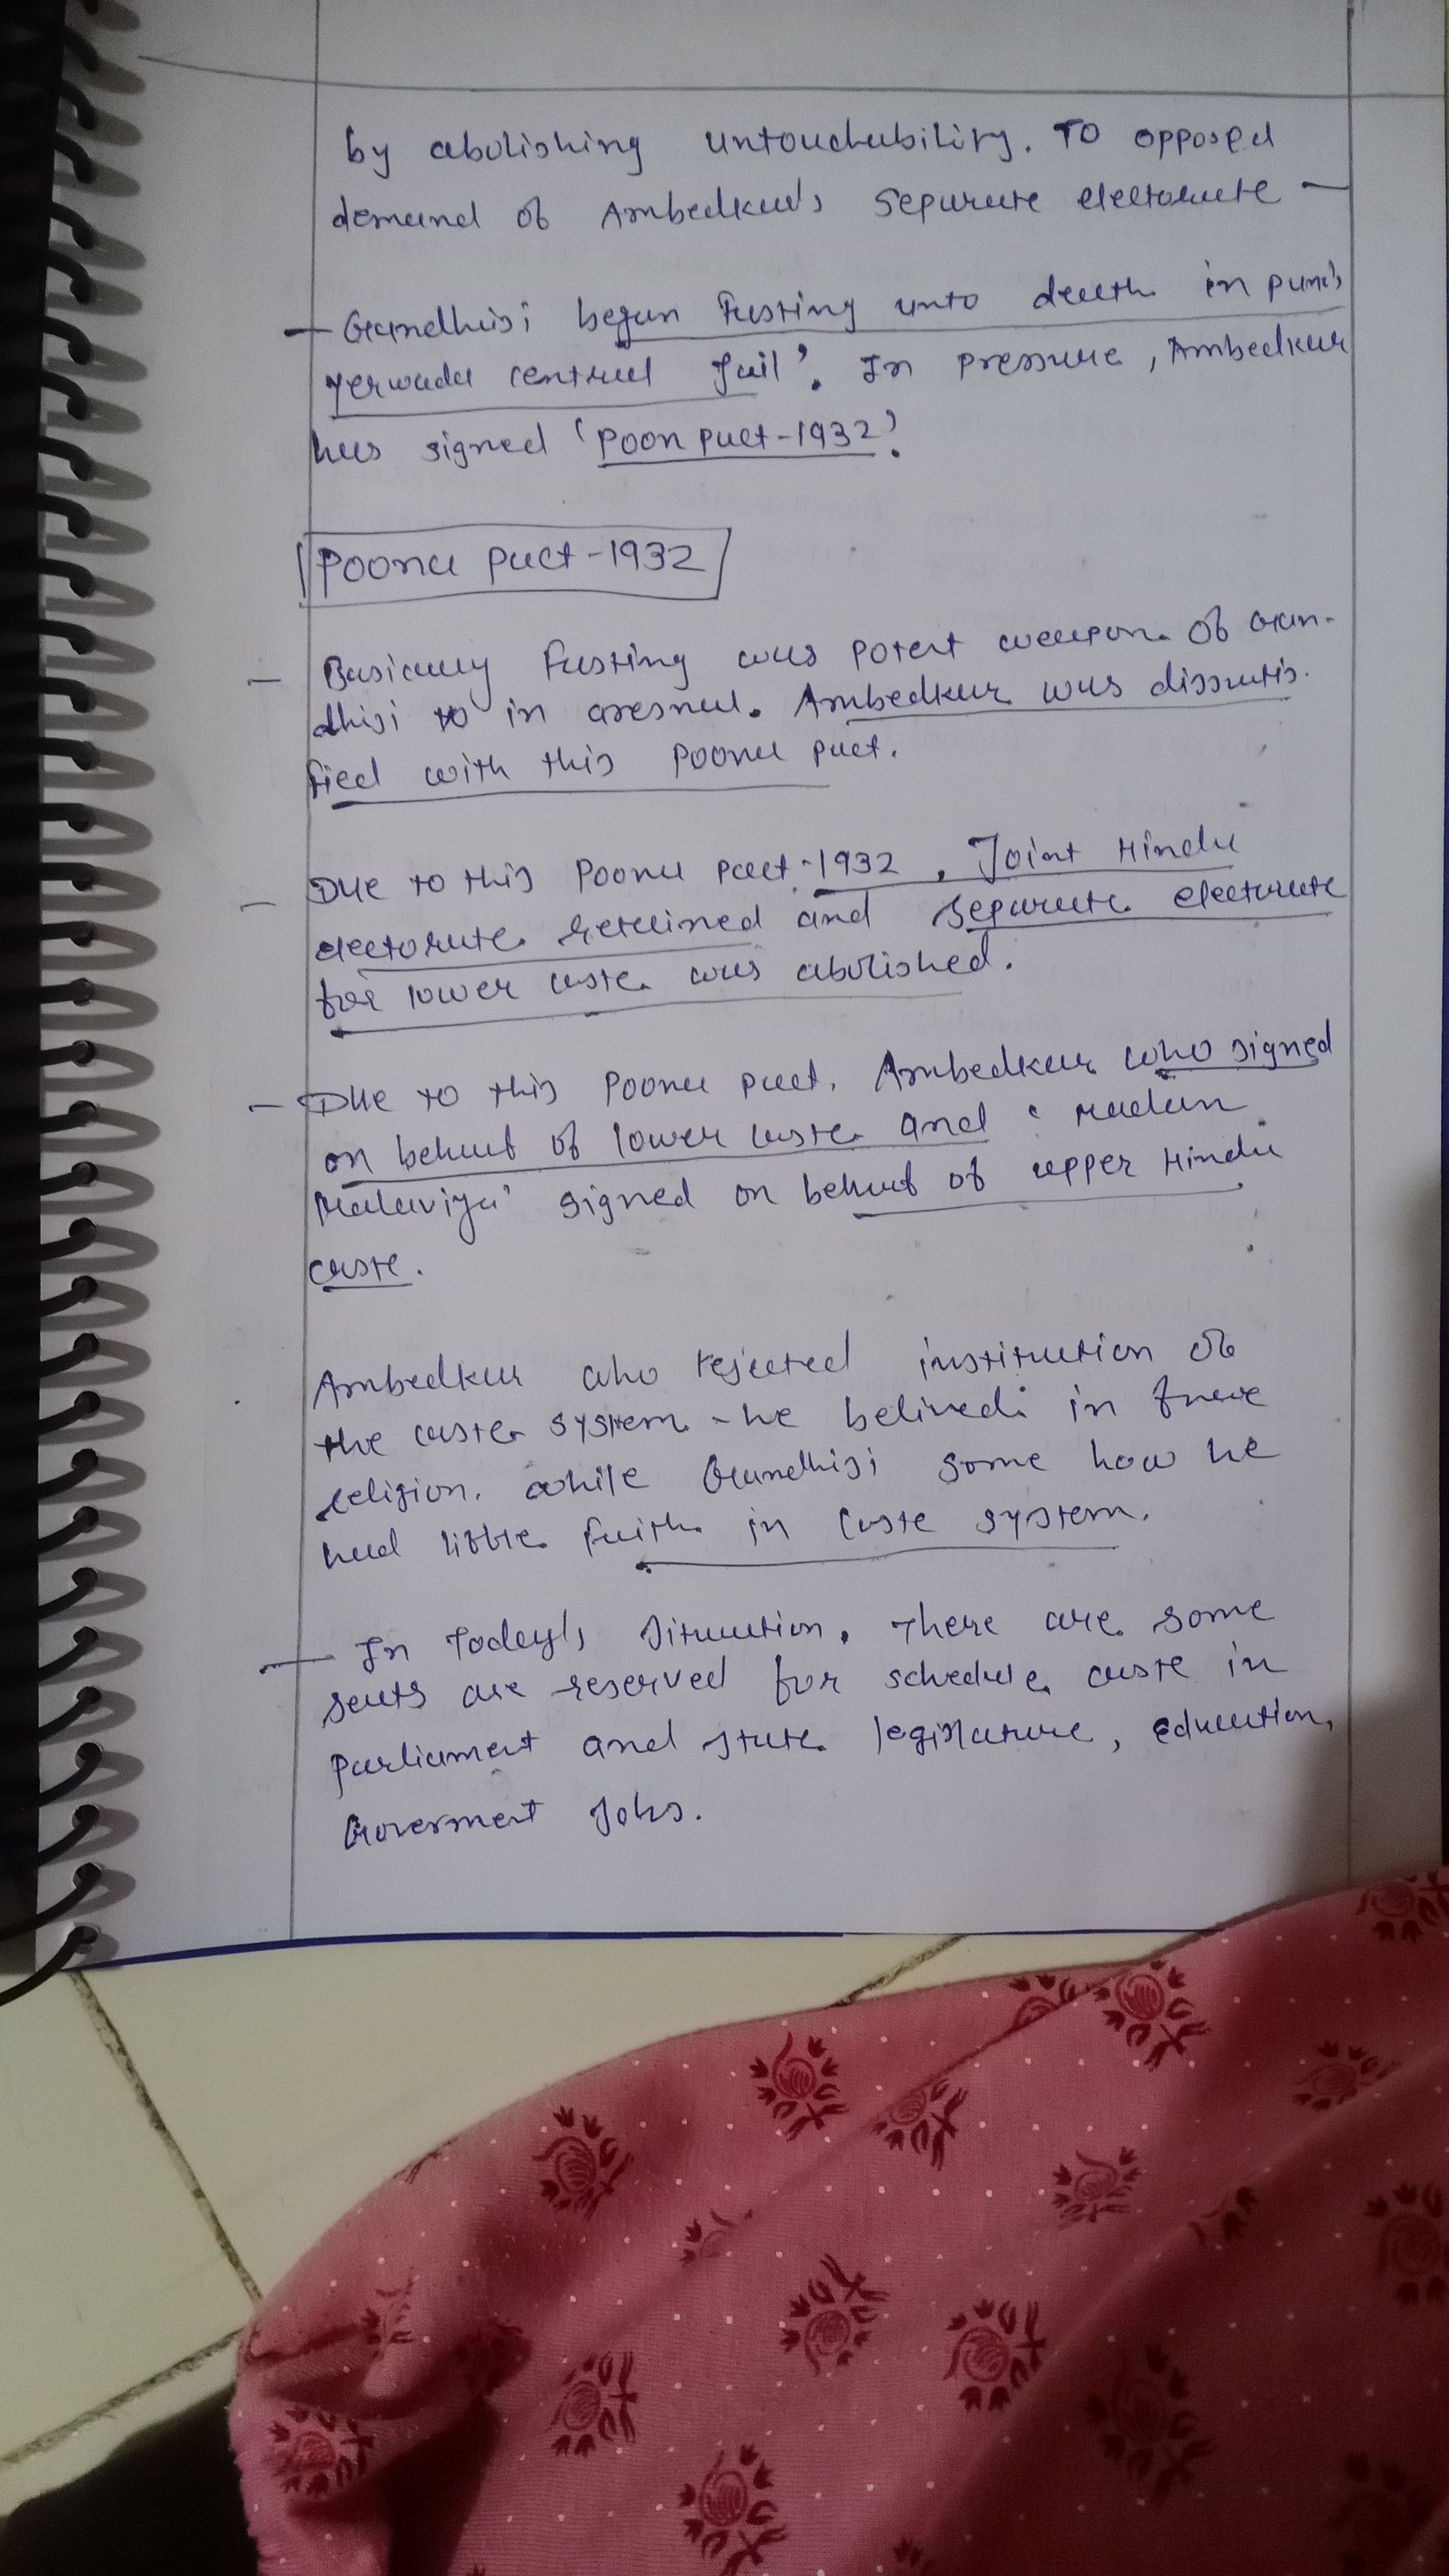 by abolishing untouchability. To opposed
demand of Ambedkar's separate electorate —
— Gandhiji began fasting unto death in pune's
yerwada central Jail'. In pressure, Ambedkar
has signed 'Poon pact-1932'.
Poona pact-1932
— Basically fasting was potent weapon of Gan-
dhiji to in aresnal. Ambedkar was dissatis-
fied with this Poona pact.
— Due to this Poona pact-1932, Joint Hindu
electorate retained and separate electorate
for lower caste was abolished.
— Due to this Poona pact, Ambedkar who signed
on behalf of lower caste and 'Madan
Malaviya' signed on behalf of upper Hindu
caste.
Ambedkar who rejected institution of
the caste system - he belived in
religion. while Gandhiji some how he
had little faith in caste system.
— In Today's situation, There are some
seats are reserved for schedule caste in
parliament and state legislature, education,
Goverment Jobs.